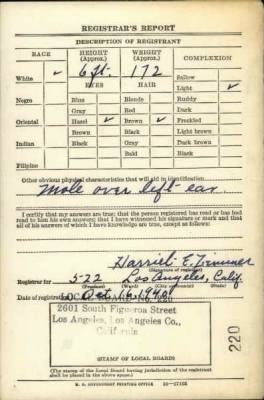 REGISTRAR'S REPORT
DESCRIPTION OF REGISTRANT
RACE HEIGHT (Approx.) WEIGHT (Approx.) COMPLEXION
White ✓ 6 ft. 172 Sallow
EYES HAIR Light ✓
Negro Blue Blonde Ruddy
Gray Red Dark
Oriental Hazel ✓ Brown ✓ Freckled
Brown Black Light brown
Indian Black Gray Dark brown
Bald Black
Filipino
Other obvious physical characteristics that will aid in identification
Mole over left ear.
I certify that my answers are true; that the person registered has read or has had
read to him his own answers; that I have witnessed his signature or mark and that
all of his answers of which I have knowledge are true, except as follows:
Harriet E.
(Signature of registrar)
Registrar for 522 Los Angeles, Calif.
(Precinct) (Ward) (City or county) (State)
Date of registration Oct. 16, 1940
LOCAL BOARD NO. 220
2601 South Figueroa Street
Los Angeles, Los Angeles Co.,
California
220
(STAMP OF LOCAL BOARD)
(The stamp of the Local Board having jurisdiction of the registrant
shall be placed in the above space.)
U. S. GOVERNMENT PRINTING OFFICE 16—17105